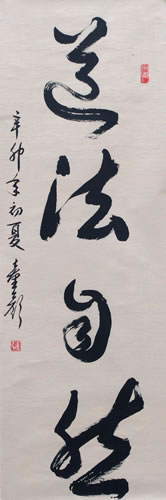 道法自然
辛卯年初夏